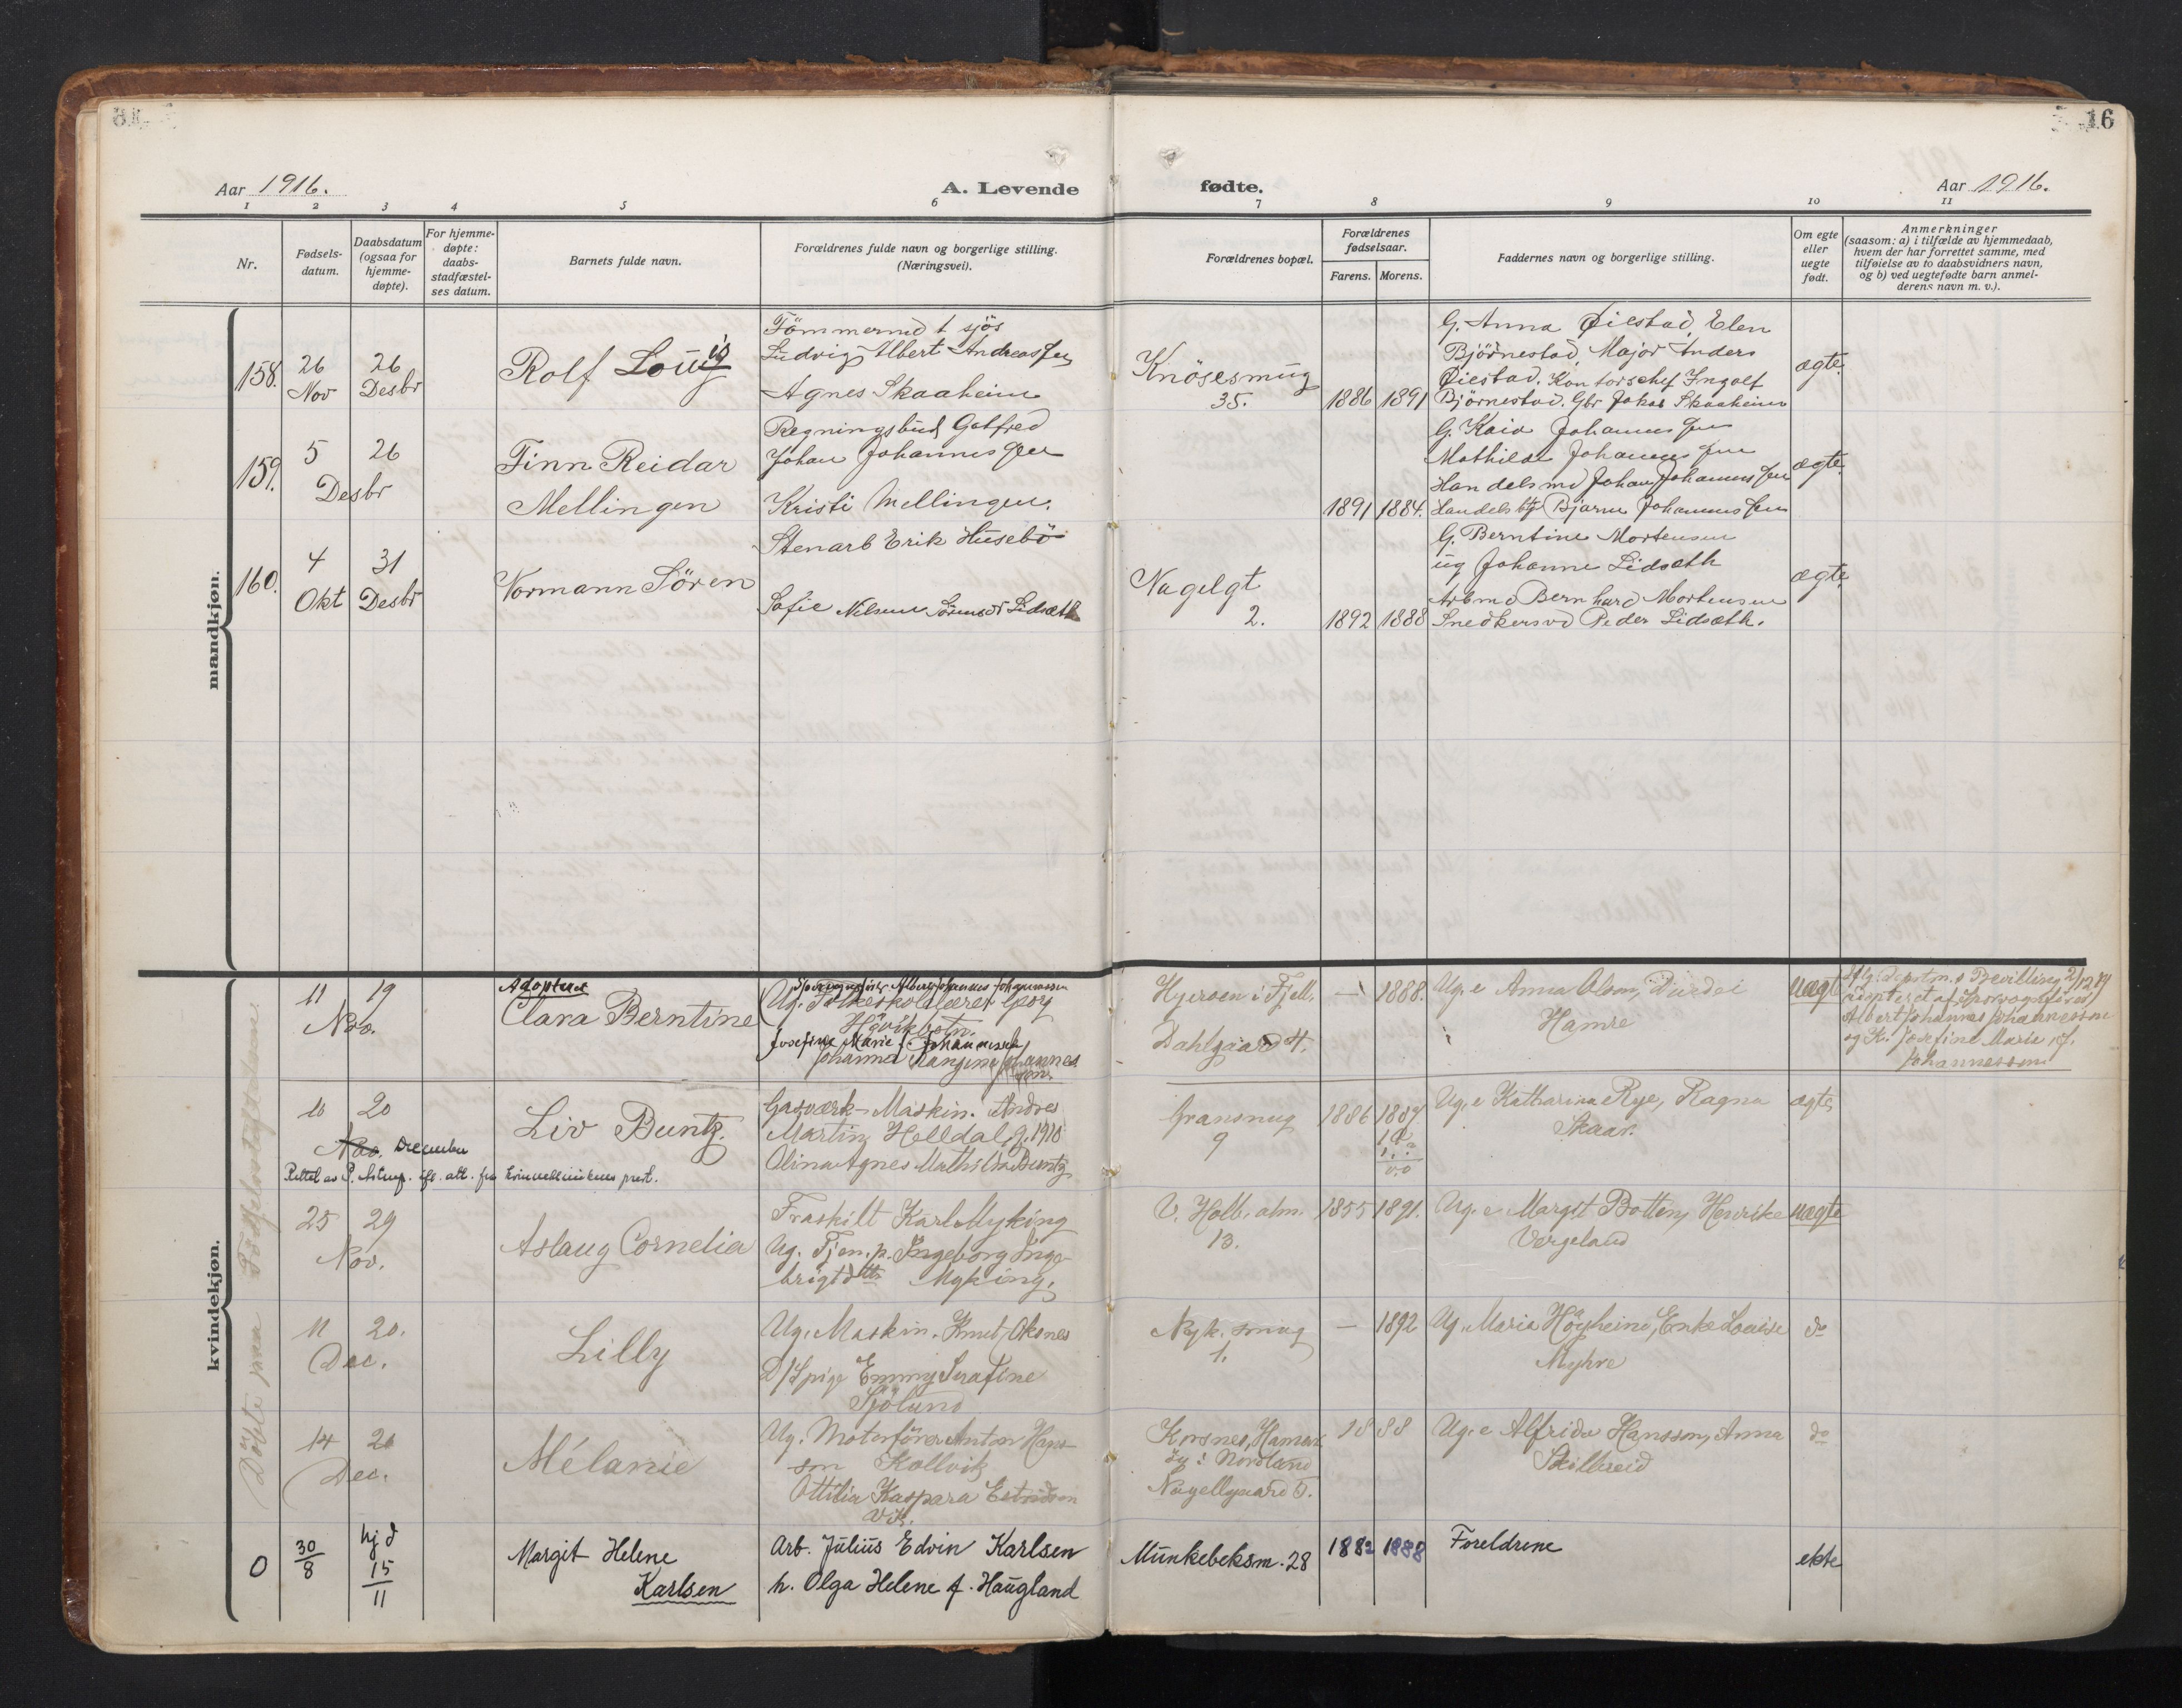 16
Aar 1916.
A. Levende
fødte.
Aar 1916.
1 2 3 4 5 6 7 8 9 10 11
Nr.
Fødsels-
datum.
Daabsdatum
(ogsaa for
hjemme-
døpte).
For hjemme-
døpte:
daabs-
stadfæstel-
ses datum.
Barnets fulde navn.
Forældrenes fulde navn og borgerlige stilling.
(Næringsvei).
Forældrenes bopæl.
Forældrenes
fødselsaar.
Farens. Morens.
Faddernes navn og borgerlige stilling.
Om egte
eller
uegte
født.
Anmerkninger
(saasom: a) i tilfælde av hjemmedaab,
hvem der har forrettet samme, med
tilføielse av to daabsvidners navn,
og b) ved uegtefødte barn anmel-
derens navn m. v.).
mandkjøn.
158.
26
Nov
26
Desbr
Rolf Louis
Tömmermd t sjös
Ludvig Albert Andreassen
Agnes Skaaheim
Knösesmug
35.
1886 1891
G. Anna Öiestad, Elen
Björnestad, Major Anders
Öiestad. Kontorschef Ingolf
Björnestad. Gbr Jakob Skaaheim
ægte.
159.
5 26
Desbr
Finn Reidar
Mellingen
Regningsbud Gotfred
Johan Johannessen
Kristi Mellingen.
1891 1884.
G. Kaia Johannessen
Mathilde Johannessen
Handelsmd Johan Johannessen
Handelsbtj Bjarne Johannessen
ægte.
160.
4
Okt
31
Desbr
Normann Sören
Stenarb Erik Husebö
Sofie Nilsen Sörensdr Lidsæth
Nagelgt
2.
1892 1888
G. Berntine Mortensen
ug Johanne Lidsæth
Arbmd Bernhard Mortensen
Snedkersvd Peder Lidsæth.
ægte.
kvindekjøn.
Döbte paa Födselsstiftelsen
11 19
Nov.
Adopteret
Clara Berntine
Sporvognfører Albert Johannes Johannessen
Ug. Folkeskolelærer Georg
Hövikbotn.
Josefine Marie f. Johannessen
Johanna Rangina Johannes
sen.
Hjersen i Fjell.
Dahlgaard 4.
— 1888.
Ug. e Anna Olsen, Durdei
Hamre
Uægte
Iflg. Depstm.s Bevilling 2/12 19
adopteret af Sporvognfører
Albert Johannes Johannessen
og H. Josefine Marie f.
Johannessen
10 20
Nov. December
Rettet av P. Astrup. ifl. att. fra kvinneklinikens prest.
Liv Buntz.
Gasværk-Maskin. Andres
Martin Helldal, g. 1910
Olina Agnes Mathilda Buntz
Gransmug
9
1886 1887
Ug. e Katharina Rye, Ragna
Skaar.
ægte
25 29
Nov.
Aslaug Cornelia
Fraskilt Karl Myking
Ug. Tjen. p. Ingeborg Inge-
brigtsdtr Myking.
V. Holb. alm.
13.
1855 1891.
Ug. e Margit Botten, Henrike
Vergeland
uægte
11 20.
Dec.
Lilly
Ug. Maskin. Knut Oksnes
D/Spige Emmy Serafine
Sjölund
Nyk. smug
1.
— 1892
Ug. Maria Höyheim, Enke Louise
Myhre
do
14 20
Dec.
Mélanie
Ug. Motorförer Anton Hans-
son Kollvik
Ottilia Kaspara
Vik.
Korsnes, Hamar-
öy i Nordland
Nagellgaard 5.
1888
Ug. e Alfrida Hansson, Anna
Skilbreid
do
0
30
8
hjd
15
11
Margit Helene
Karlsen
Arb. Julius Edvin Karlsen
h. Olga Helene f. Haugland
Munkebeksm. 28
1882 1888
Foreldrene
ekte